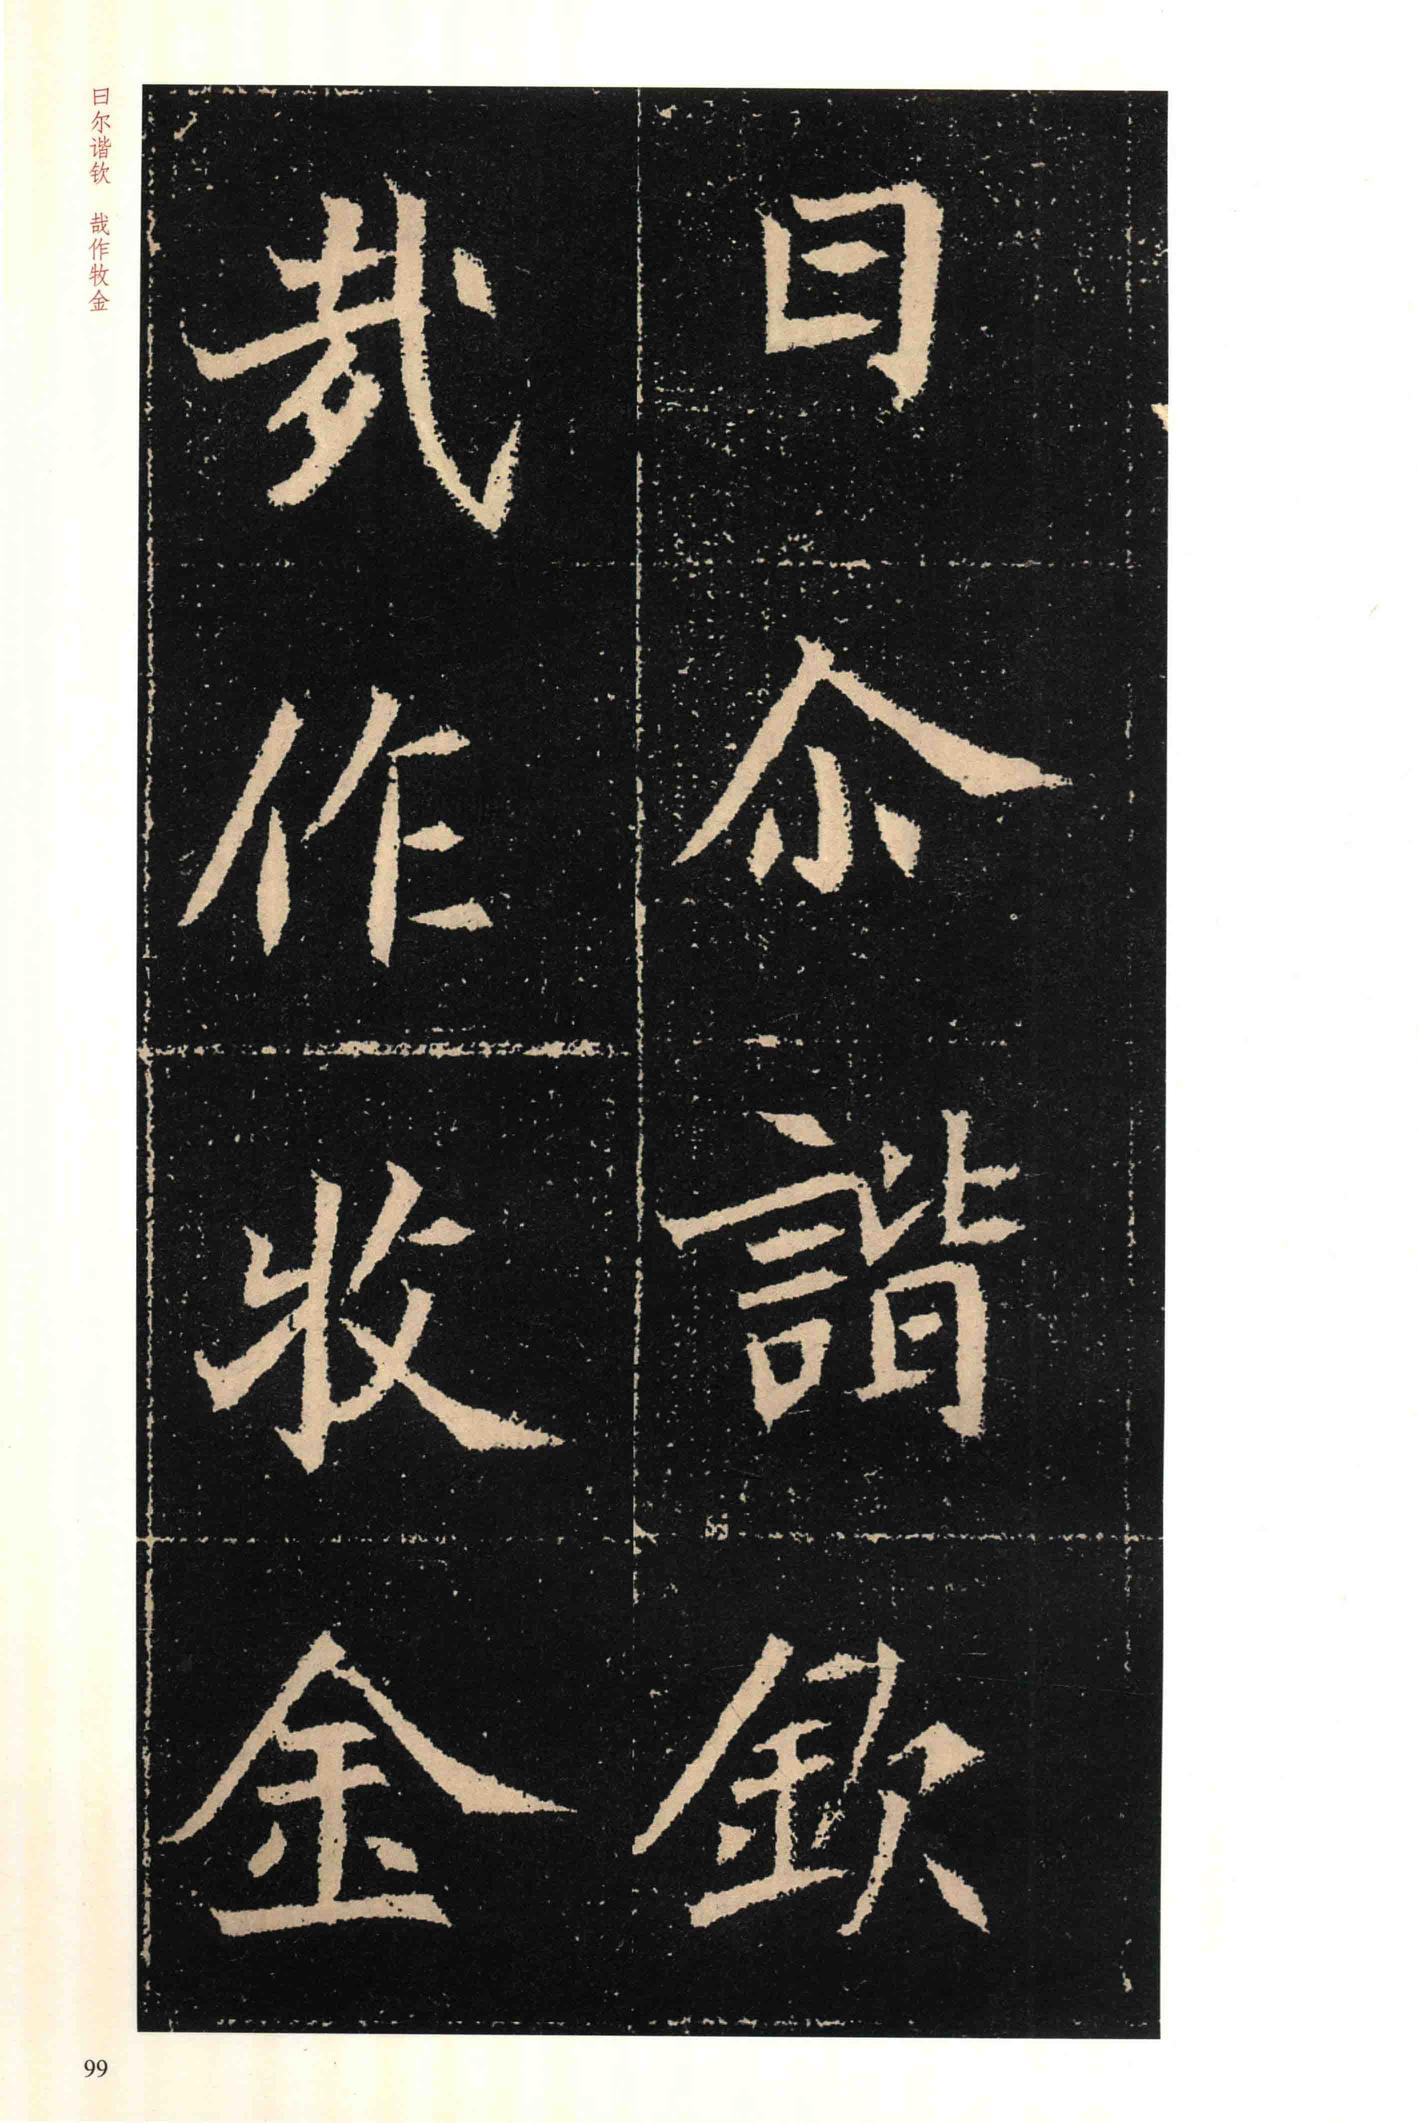 曰尒諧欽
哉作牧金
曰尔谐钦 哉作牧金
99